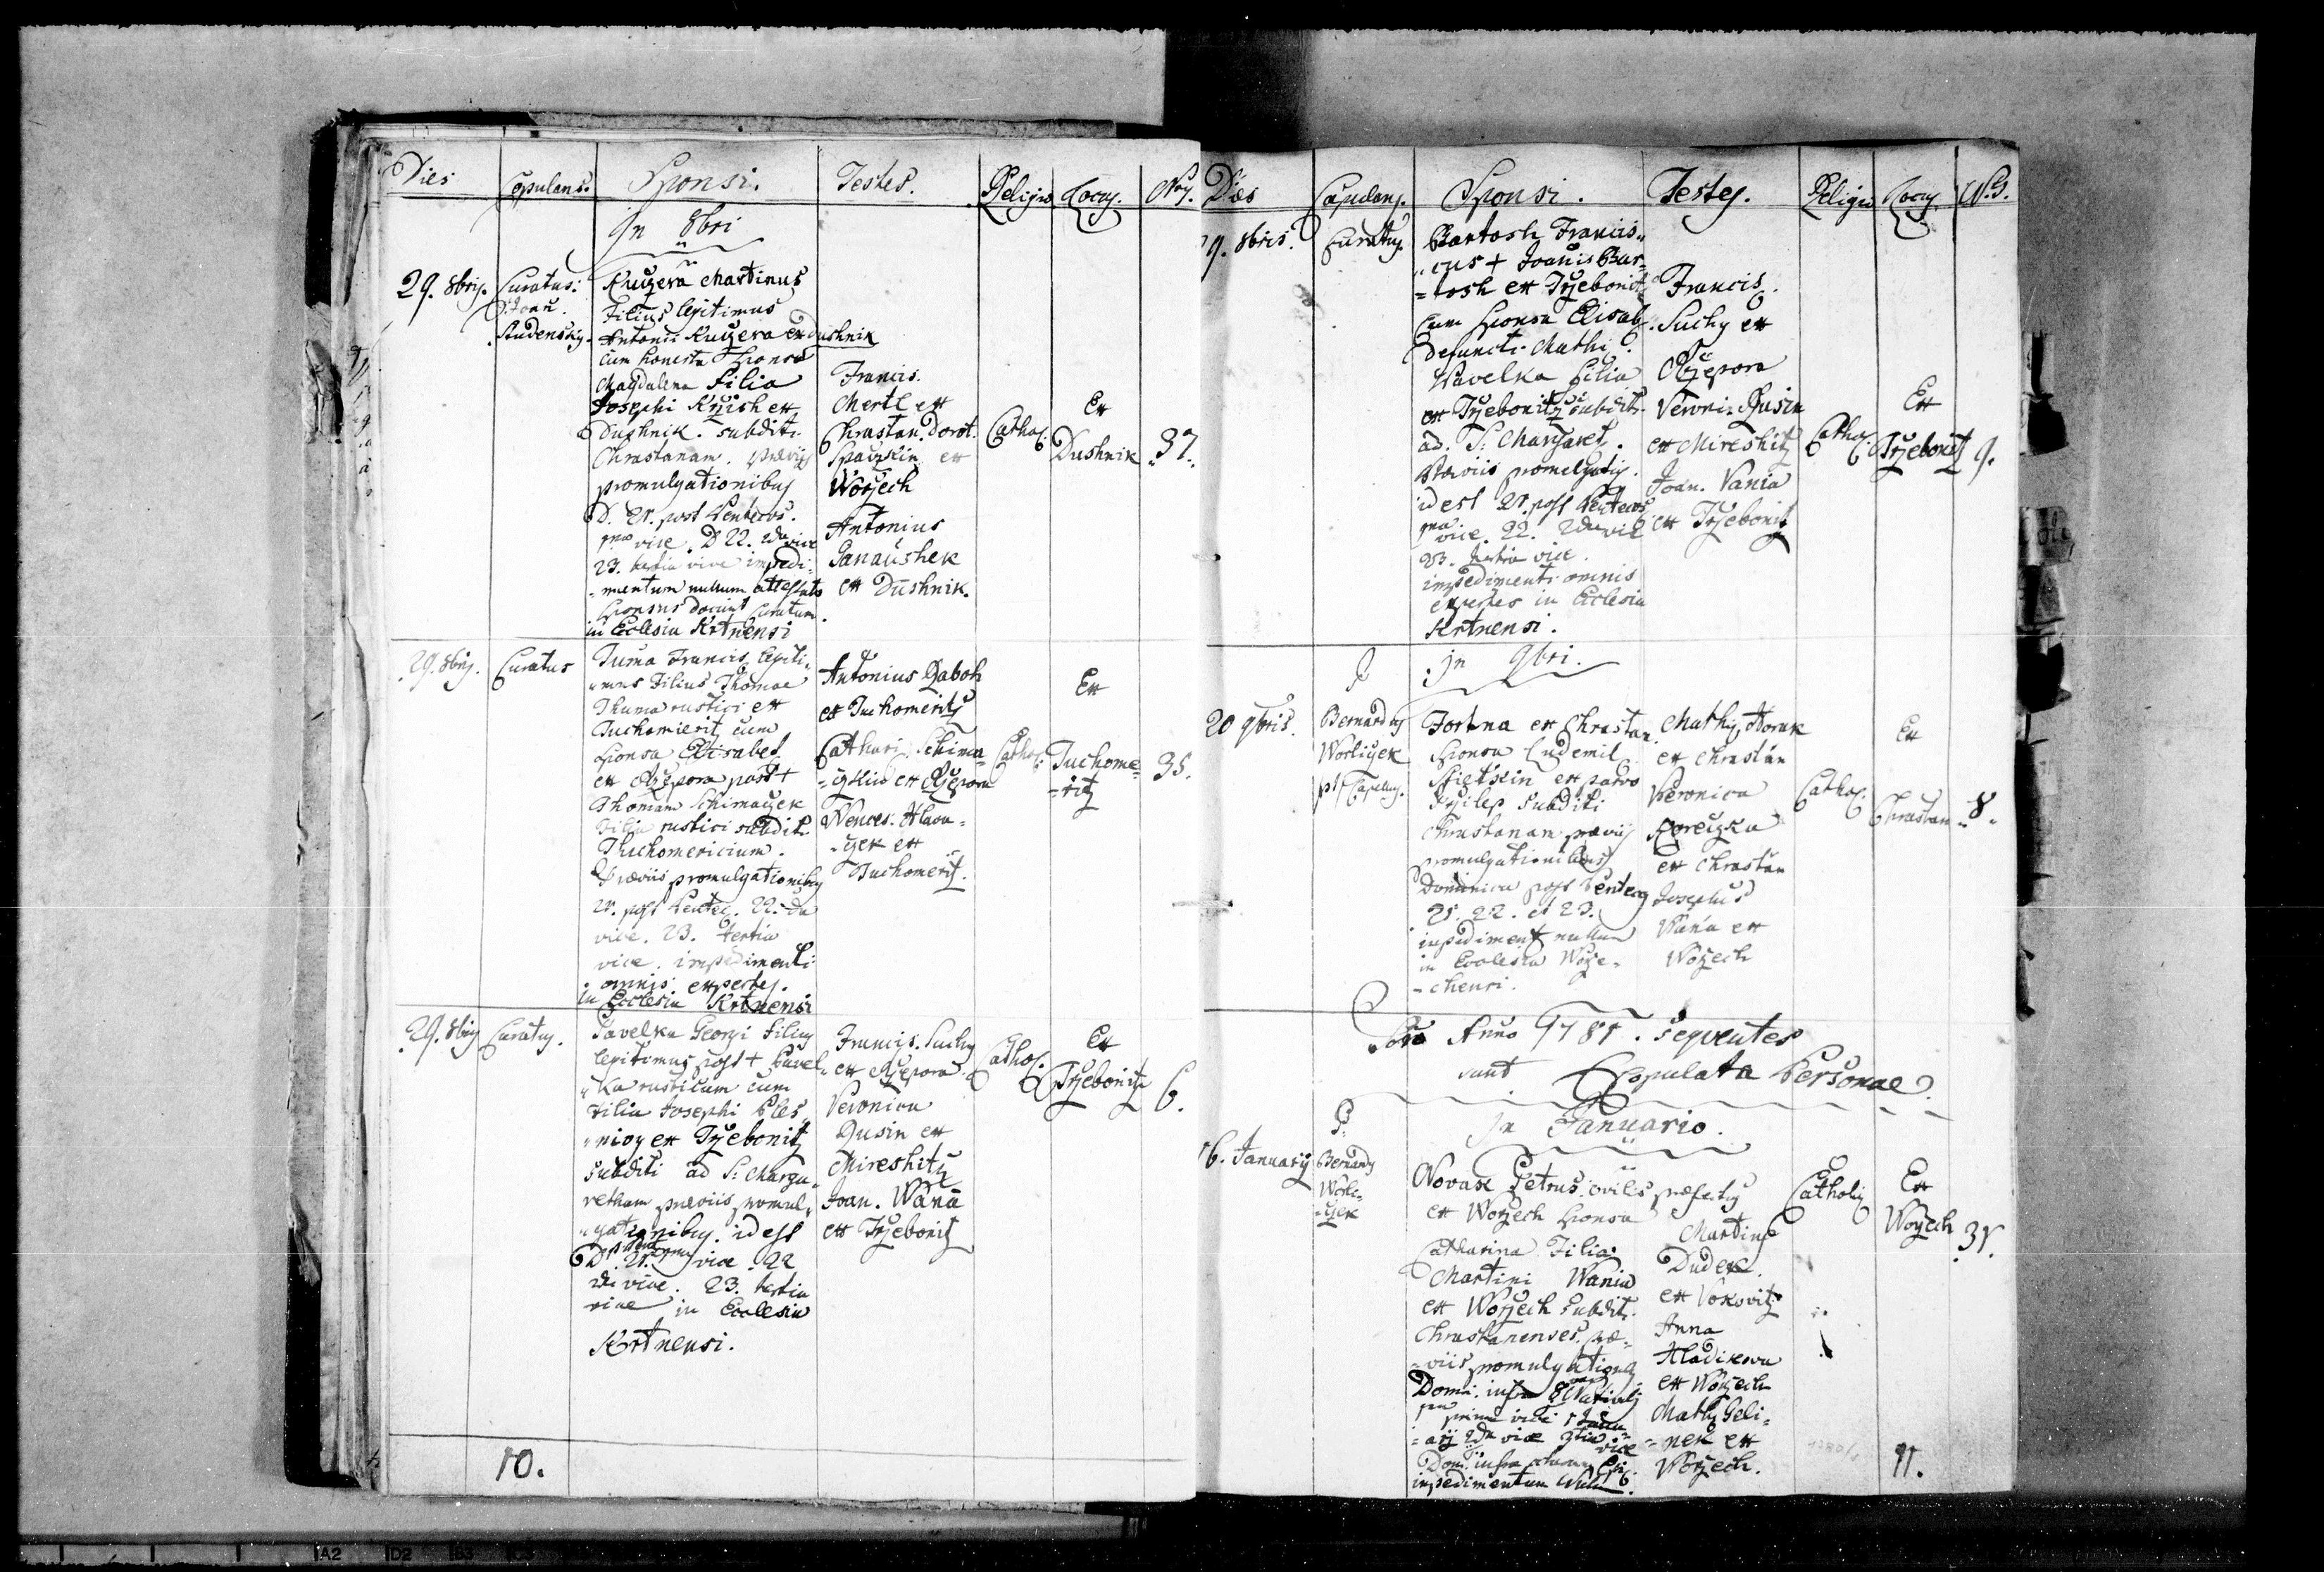 Dies Copulans. Sponsi. Testes. Religio Locus. Nrs.
In 8bri
29. 8bris. Curatus:
Joan.
Studensky.
Kuczera Martinus
Filius legitimus
Antonii Kuczera ex Dushnik
cum honesta Sponsa
Magdalena Filia
Josephi Krzish ex
Dushnik. subditi
Chrastanam. præviis
promulgationibus
D. 21. post Pentecos.
1ma vice. D 22. 2da vice
23. tertia vice impedi-
mentum nullum attestato
Sponsus
in Eclesia Krtnensi
Francis.
Mertl ex
Chrastan. Dorot.
ex
Worzech
Antonius
Ganaushek
ex Dushnik.
Cathol.
Ex
Dushnik
37.
29. 8bris. Curatus
Tuma Francis. legiti-
mus Filius Thomae
Thuma rustici ex
Tuchomierit cum
Sponsa Elisabet
ex Rzepora post +
Thomam Schimaczek
Filia rustici subditi
Thuchomericium.
Præviis promulgationibus
21. post Pentec. 22. da
vice. 23. tertia
vice. impedimenti
omnis expertes.
in Ecclesia Krtnensi
Antonius Raboh
ex Tuchomeritz
Cathari. Schima-
czkin ex Rzepora
Wences. Hlava-
czek ex
Tuchomeritz.
Cathol.
Ex
Tuchome-
ritz
35.
29. 8bris Curatus.
Pavelka Georgi Filius
legitimus post + Pavel-
ka rusticum cum
Filia Josephi Ples-
ex Trzebonitz
subditi ad S: Marga-
retham præviis promul-
gationibus. id est
D. 21. vice. 22
da vice. 23. tertia
vice in Ecclesia
Krtnensi.
Francis. Suchy
ex Rzepora
Veronica
Rusin ex
Mireshitz
Joan. Wania
ex Trzebonitz
Cathol.
Ex
Trzebonitz
6.
10.
Dies Copulans. Sponsi. Testes. Religio Locus N.S.
29. 8bris. Curatus.
Bartosh Francis-
cus + Joanis Bar-
tosh ex Trzebonitz
cum Sponsa Elisab.
Defuncti Mathi.
Pavelka filia
ex Trzebonitz subditi
ad. S: Margaret.
Præviis promulgatis.
id est 21. post Pentecos.
1ma vice. 22. 2da vice
23. tertia vice.
impedimenti omnis
expertes in Eclesia
Krtnensi.
Francis.
Suchy ex
Rzepora
Veroni. Rusin
ex Mireshitz
Joan. Vania
ex Trzebonitz
Cathol.
Ex
Trzebonitz
9.
In 9bri.
20 9bris.
P
Bernardus
Worliczek
Fortna ex Chrastan.
Sponsa Ludemil.
ex parvo
Przilep subditi
Chrastanam præviis
promulgationibus
Dominica post Pentecos
21. 22. et 23.
impediment nullum
in Ecclesia Worze-
chensi.
Mathis Horak
ex Chrastan
Veronica
ex Chrastan
Josephus
Wania ex
Worzech
Cathol.
Ex
Chrastan
8.
Anno 1781. sequentes
sunt Copulata Personae.
In Januario.
16. Januarij
P.
Bernardus
Worli-
czek
Novak Petrus ovilis præfectus
ex Worzech Sponsa
Catharina Filia
Martini Wania
ex Worzech subditi
Chrastanenses. præ-
viis promulgationes
Domi. infra 8 Nativit.
prima vice 1 Janu-
arij 2da vice 3tia vice
Dom. infra
impedimentum Nullum.
Martinus
Dudek
ex Vokovitz
Anna
Hladikova
ex Worzech
Mathis Geli-
nek ex
Worzech.
Catholis
Ex
Worzech
31.
11.